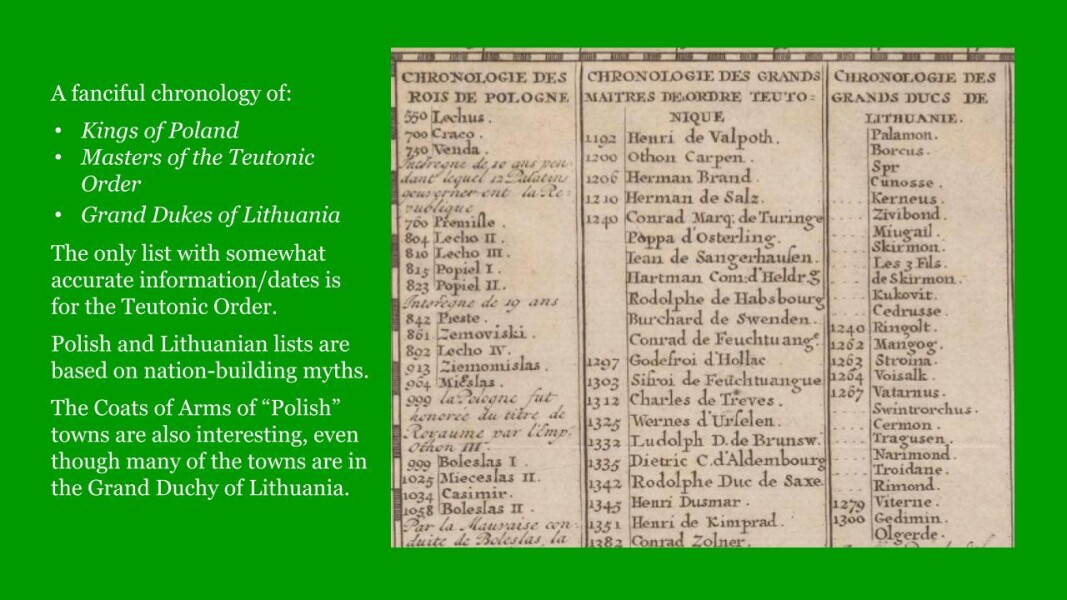 A fanciful chronology of:
• Kings of Poland
• Masters of the Teutonic
Order
• Grand Dukes of Lithuania
The only list with somewhat
accurate information/dates is
for the Teutonic Order.
Polish and Lithuanian lists are
based on nation-building myths.
The Coats of Arms of “Polish”
towns are also interesting, even
though many of the towns are in
the Grand Duchy of Lithuania.
CHRONOLOGIE DES
ROIS DE POLOGNE
550 Lechus.
700 Craco.
750 Venda.
Interegne de 10 ans pen-
dant lequel 12 Palatins
gouvernerent la Re-
publique
760 Premisle.
804 Lecho II.
810 Lecho III.
815 Popiel I.
823 Popiel II.
Interegne de 19 ans
842 Pieste.
861 Zemoviski.
892 Lecho IV.
913 Ziemomislas.
964 Mieslas.
999 la Pologne fut
honorée du titre de
Royaume par l'Emp.
Othon III.
999 Boleslas I.
1025 Mieceslas II.
1034 Casimir.
1058 Boleslas II.
Par la Mauvaise con-
duite de Boleslas, la
CHRONOLOGIE DES GRANDS
MAITRES DE ORDRE TEUTO=
NIQUE
1192 Henri de Valpoth.
1200 Othon Carpen.
1206 Herman Brand.
1210 Herman de Salz.
1240 Conrad Marq. de Turinge
Poppa d'Osterling.
Iean de Sangerhausen.
Hartman Com: d'Heldrg
Rodolphe de Habsbourg
Burchard de Swenden.
Conrad de Feuchtuange
1297 Godefroi d'Hollac
1303 Sifroi de Feuchtuangue
1312 Charles de Treves.
1325 Wernes d'Urselen.
1332 Ludolph D. de Brunsw.
1335 Dietric C. d'Aldembourg
1342 Rodolphe Duc de Saxe.
1345 Henri Dusmar.
1351 Henri de Kimprad.
1382 Conrad Zolner.
CHRONOLOGIE DES
GRANDS DUCS DE
LITHUANIE.
Palamon.
Borcus.
Spr
Cunosse.
.... Kerneus.
.... Zivibond.
.... Miugail.
.... Skirmon.
.... Les 3 Fils.
.... de Skirmon.
.... Kukovit.
.... Cedrusse.
1240 Ringolt.
1262 Mangog.
1263 Stroina.
1264 Voisalk.
1267 Vatarnus.
.... Swintrorchus.
.... Cermon.
.... Tragusen.
.... Narimond.
.... Troidane.
.... Rimond.
1279 Viterne.
1300 Gedimin.
Olgerde.